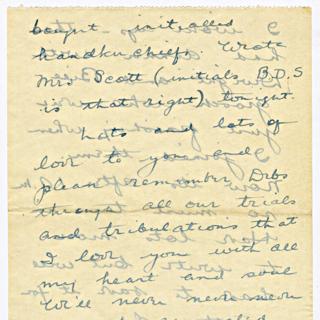 bought initialed
handkuchiefs. Wrote
Mrs Scott (initials B.D.S
is that right) tonight.
hats and lots of
love to you and
please remember Dibs
through all our trials
and tribulations that
I love you with all
my heart and soul
We'll never